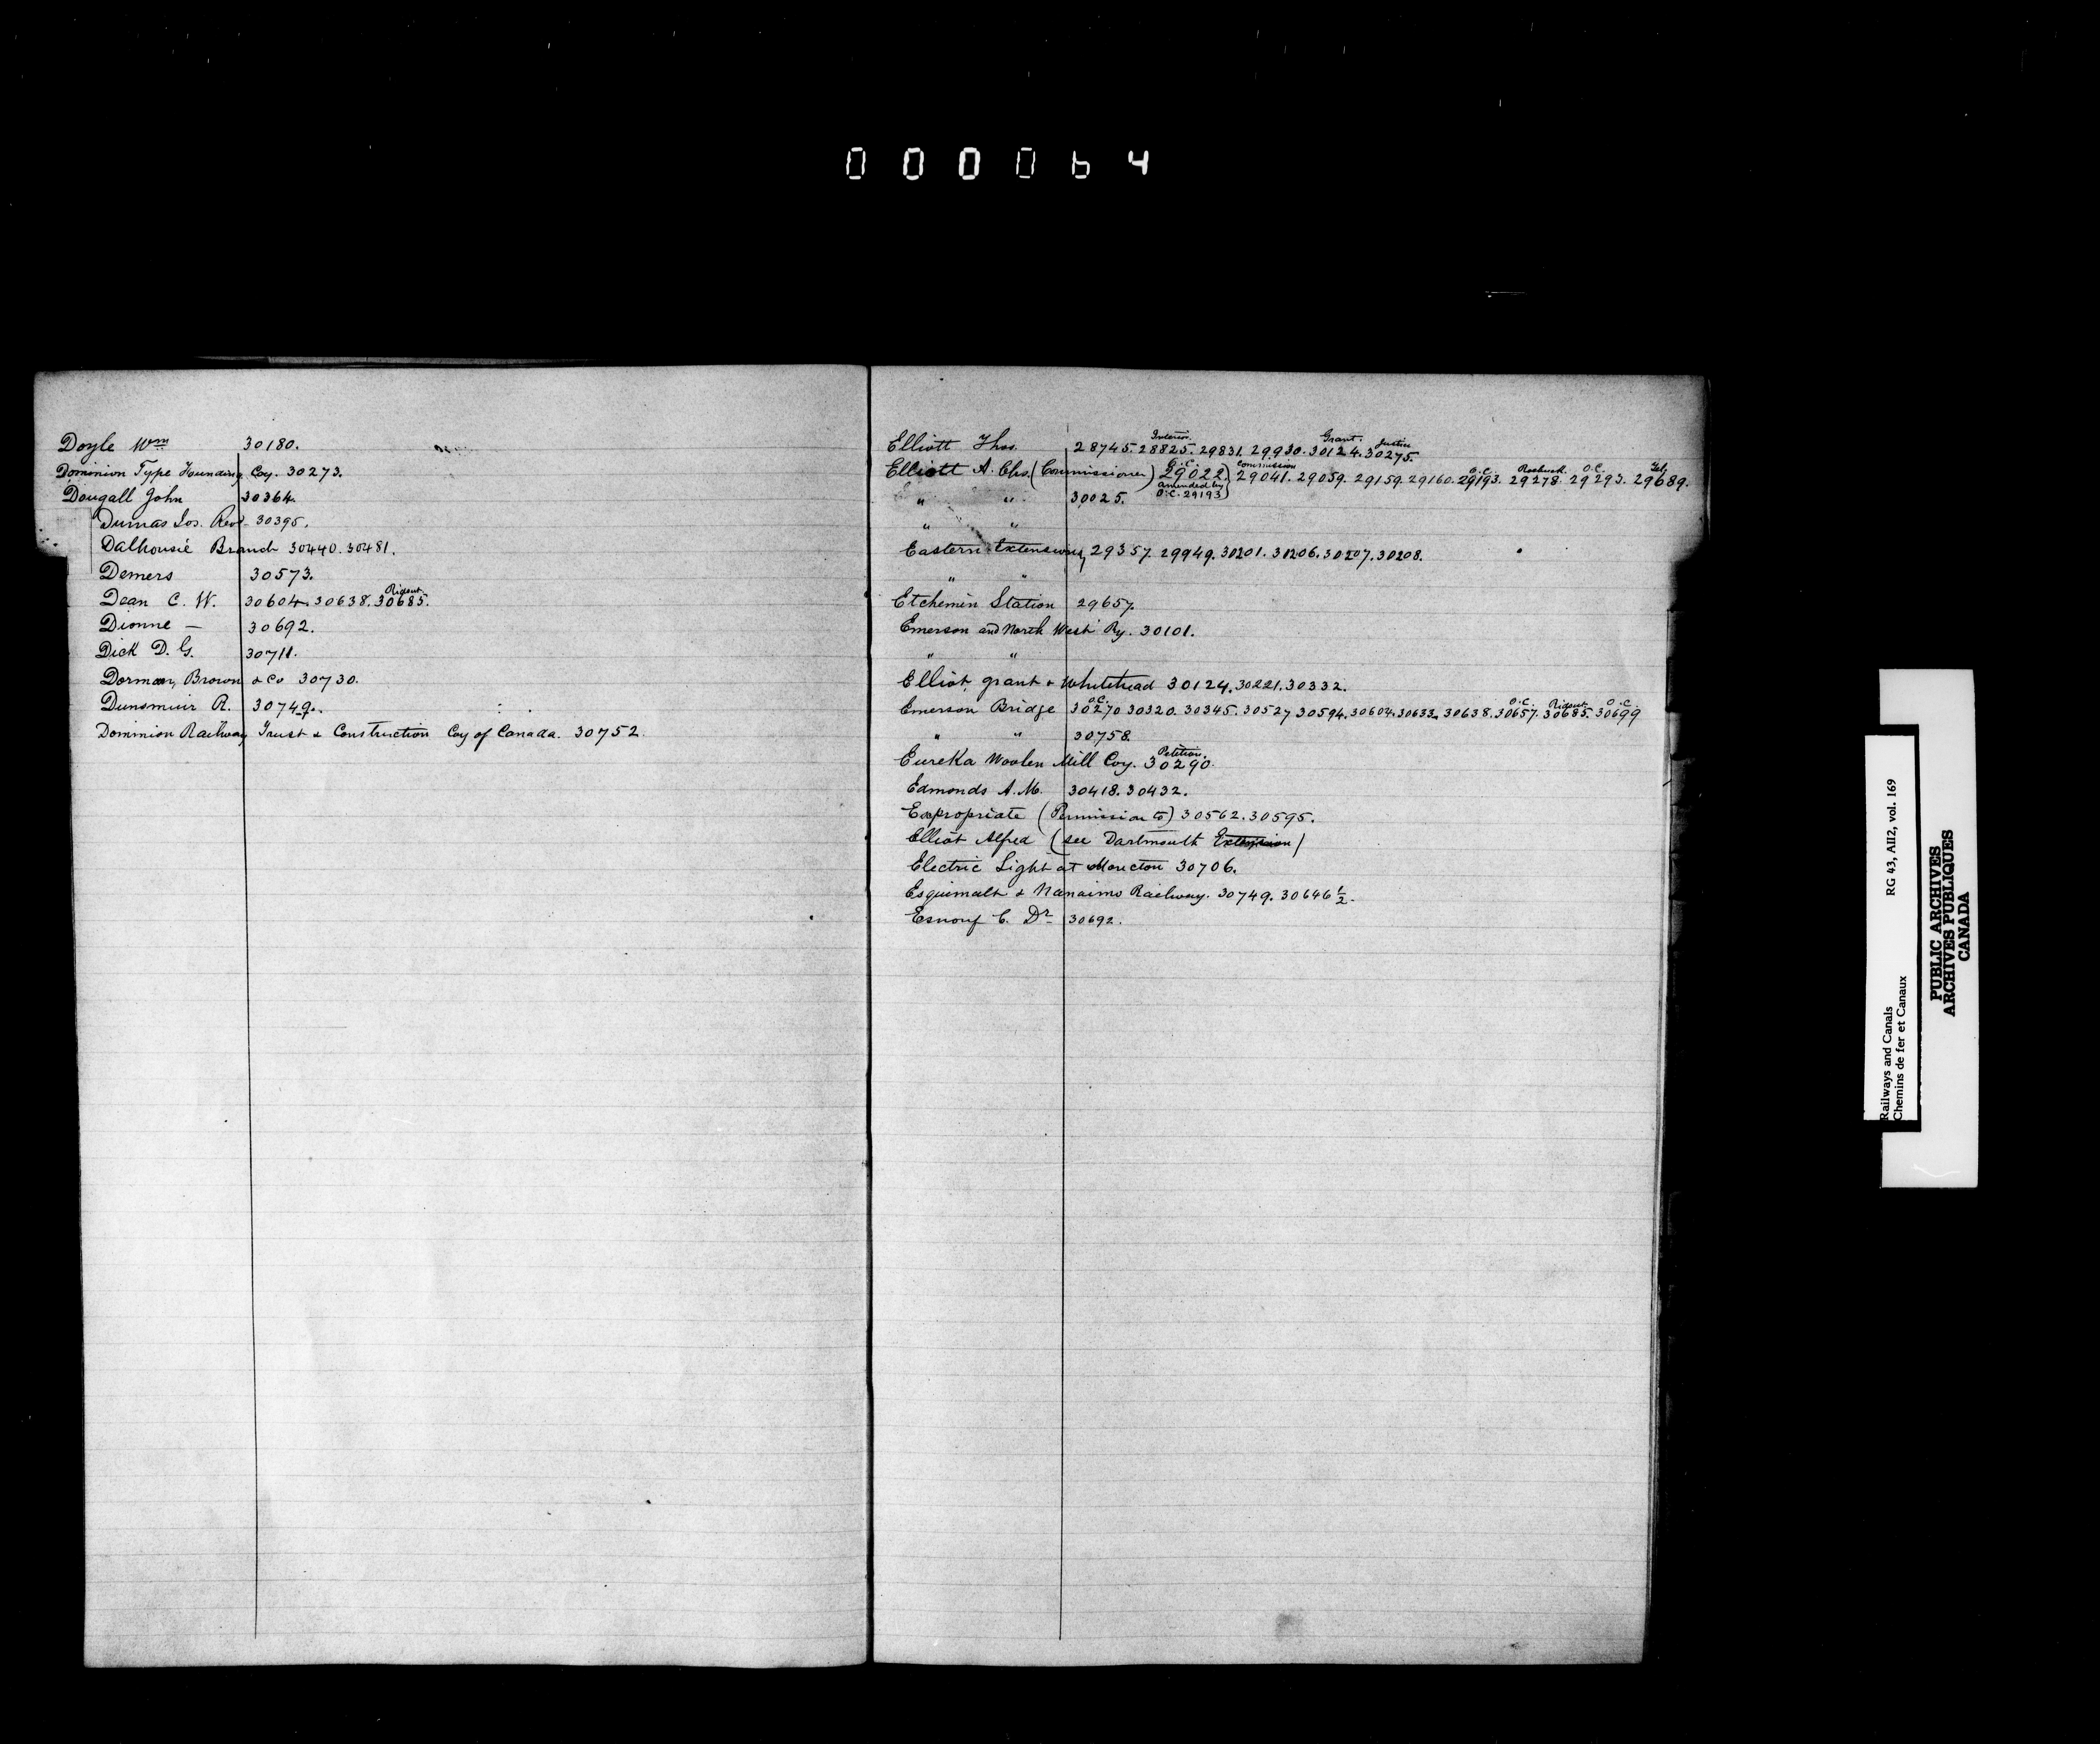 000064
Doyle Wm 30180.
Dominion Type Founding Coy. 30273.
Dougall John 30364.
Dumas Jos. Revd 30395.
Dalhousie Branch 30440. 30481.
Demers 30573.
Rideout
Dean C. W. 30604. 30638. 30685.
Dionne — 30692.
Dick D. G. 30711.
Dorman, Brown & Co 30730.
Dunsmuir R. 30749.
Dominion Railway Trust & Construction Coy of Canada. 30752.
Interior. Grant. Justice
Elliott Thos. 28745. 28825. 29831. 29930. 30124. 30275.
O.C. Commission O.C. Roebuck. O.C. Tel.
Elliott A. Chs. (Commissioner) 29022. 29041. 29059. 29159. 29160. 29193. 29278. 29293. 29689.
amended by
" " 30025. O.C. 29193)
" "
Eastern Extension, 29357. 29949. 30201. 30206. 30207. 30208.
" "
Etchemin Station 29657.
Emerson and North West Ry. 30101.
" "
Elliot, Grant & Whitehead 30124. 30221. 30332.
O.C. O.C. Rideout. O.C.
Emerson Bridge 30270 30320. 30345. 30527 30594. 30604. 30633. 30638. 30657. 30685. 30699
" " 30758.
Petition.
Eureka Woolen Mill Coy. 30290.
Edmonds A. M. 30418. 30432.
Expropriate (Permission to) 30562. 30595.
Elliot Alfred (see Dartmouth Extension)
Electric Light at Moncton 30706.
Esquimalt & Nanaimo Railway. 30749. 30646 1/2.
Esnouf C. Dr 30692.
Railways and Canals RG 43, AII2, vol. 169
Chemins de fer et Canaux
PUBLIC ARCHIVES
ARCHIVES PUBLIQUES
CANADA